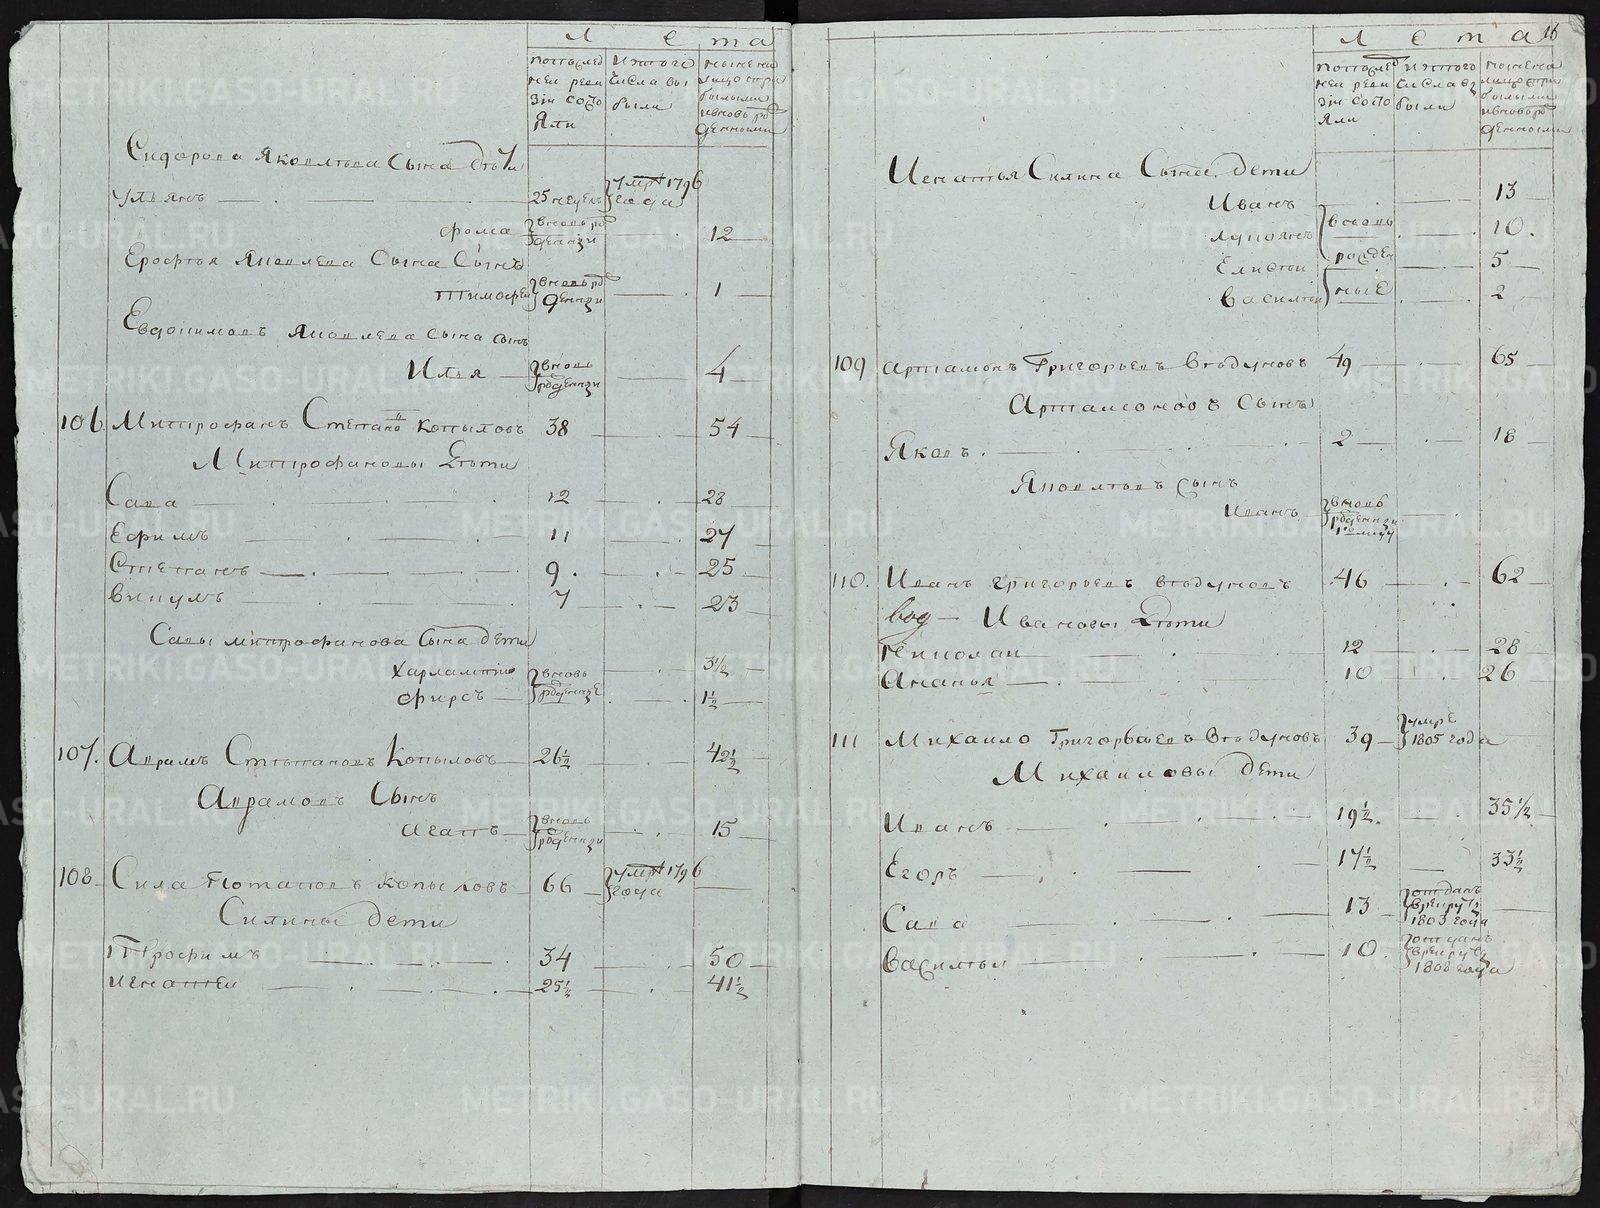 Лета
попослед
ней реви
зiи состо
яли
Изтого
числа вы
были
ныне на
лицо спри
былыми
ивновь ро
жденными
Сидорова Яковлева сына дети
Ульянъ 25 недель умре 1796
года
Фома вновь ро
жденъ 12
Ерофея Яковлева Сына Сынъ
Тимофей вновь ро
жденъ 1
Яковлева сына сынъ
Илья вновь
рожденъ 4
106 Митрофанъ Степановъ Копыловъ 38 54
Митрофановы Дети
Сава 12 28
Ефимъ 11 27
Степанъ 9 25
Викулъ 7 23
Савы митрофанова Сына дети
Харлампiй вновь 3 1/2
Фирсъ рожденые 1 1/2
107. Аврамъ Степановъ Копыловъ 26 1/2 42 1/2
Аврамовъ Сынъ
Агапъ вновь
рожденъ 15
108 Сила Потаповъ Копыловъ 66 умре 1796
года
Силины дети
Трофимъ 34 50
Игнатей 25 1/2 41 1/2
16
Лета
попослед
ней реви
зiи состо
яли
Изтого
числа вы
были
ныне на
лицо спри
былыми
ивновь ро
жденными
Игнатья Силина Сына дети
Иванъ 13
Лупоянъ вновь 10.
Елисей рожден 5
Василей ные 2
109 Артамонъ Григорьевъ Ведуновъ 49 65
Артамоновъ Сынъ
Яковъ 2 18
Яковлевъ сынъ
Иванъ вновь
рожденъ
110. Иванъ Григорьевъ Ведуновъ 46 62
Ивановы Дети
Николай 12 28
Ананья 10 26
111 Михайло Григорьевъ Ведуновъ 39 умре
1805 года
Михайловы дети
Иванъ 19 1/2 35 1/2
Егоръ 17 1/2 33 1/2
Сава 13 отданъ
врекруты
1803 года
Василей 10 отданъ
врекруты
1808 года
METRIKI.GASO-URAL.RU